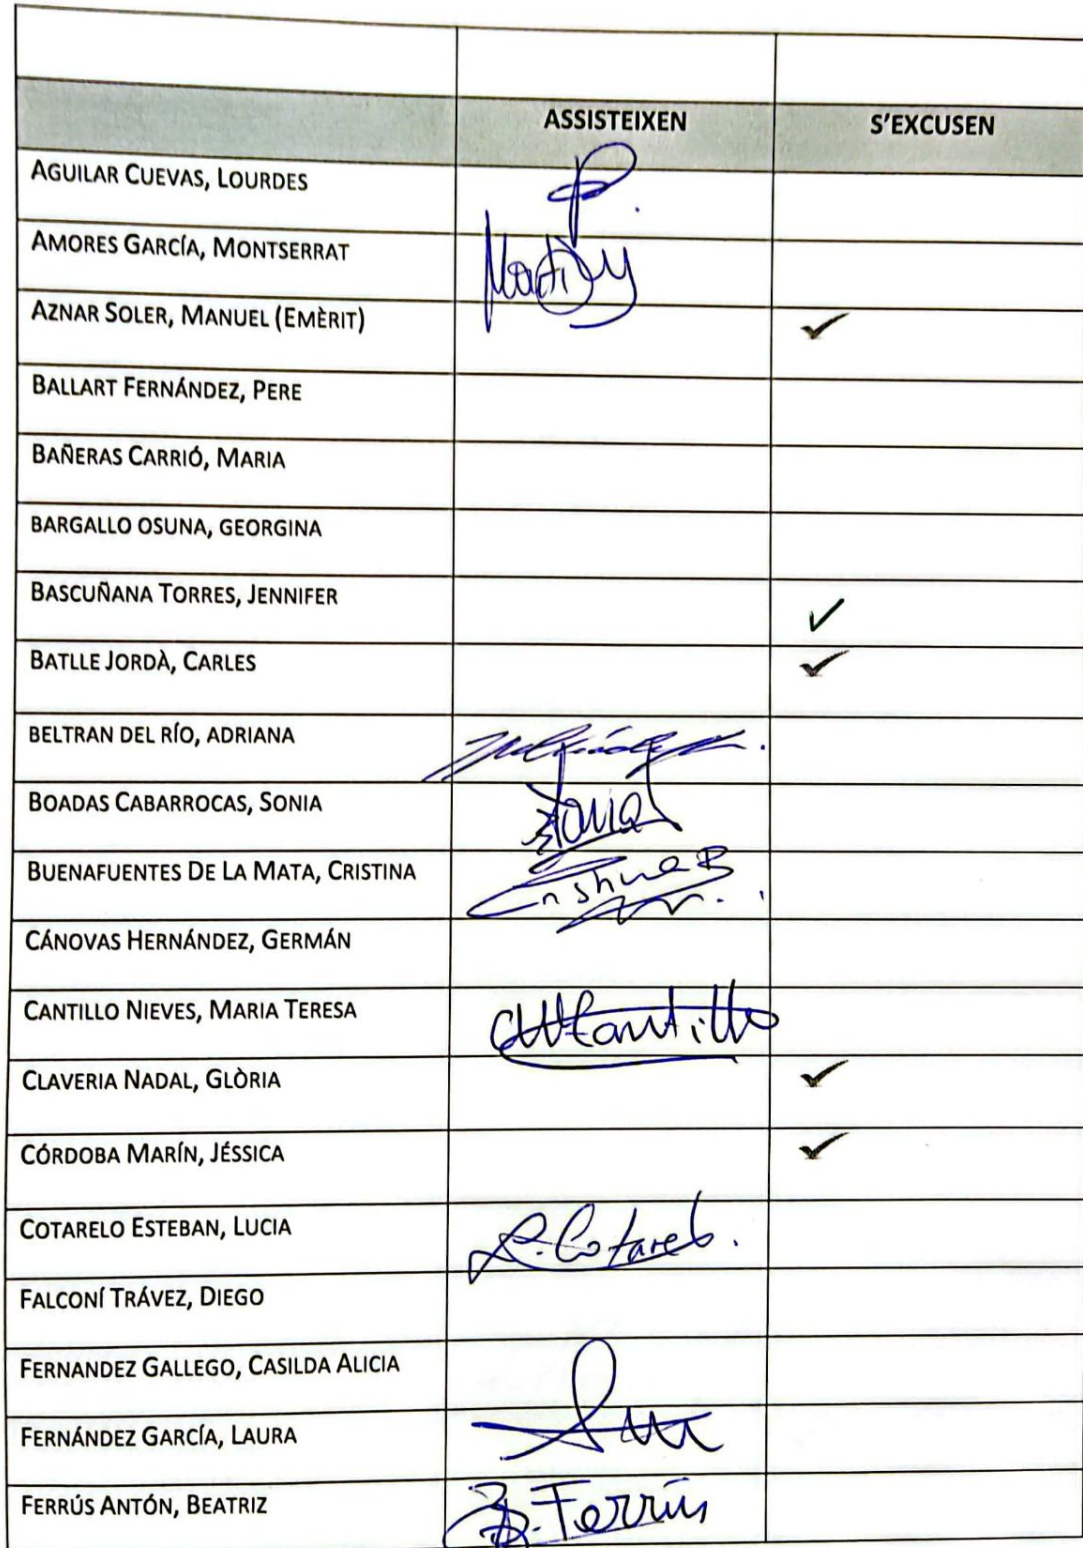 ASSISTEIXEN S'EXCUSEN
AGUILAR CUEVAS, LOURDES
AMORES GARCÍA, MONTSERRAT
AZNAR SOLER, MANUEL (EMÈRIT) ✓
BALLART FERNÁNDEZ, PERE
BAÑERAS CARRIÓ, MARIA
BARGALLO OSUNA, GEORGINA
BASCUÑANA TORRES, JENNIFER ✓
BATLLE JORDÀ, CARLES ✓
BELTRAN DEL RÍO, ADRIANA
BOADAS CABARROCAS, SONIA Sonia
BUENAFUENTES DE LA MATA, CRISTINA Cristina B
CÁNOVAS HERNÁNDEZ, GERMÁN
CANTILLO NIEVES, MARIA TERESA Cantillo
CLAVERIA NADAL, GLÒRIA ✓
CÓRDOBA MARÍN, JÉSSICA ✓
COTARELO ESTEBAN, LUCIA L. Cotarelo.
FALCONÍ TRÁVEZ, DIEGO
FERNANDEZ GALLEGO, CASILDA ALICIA
FERNÁNDEZ GARCÍA, LAURA
FERRÚS ANTÓN, BEATRIZ B. Ferrús